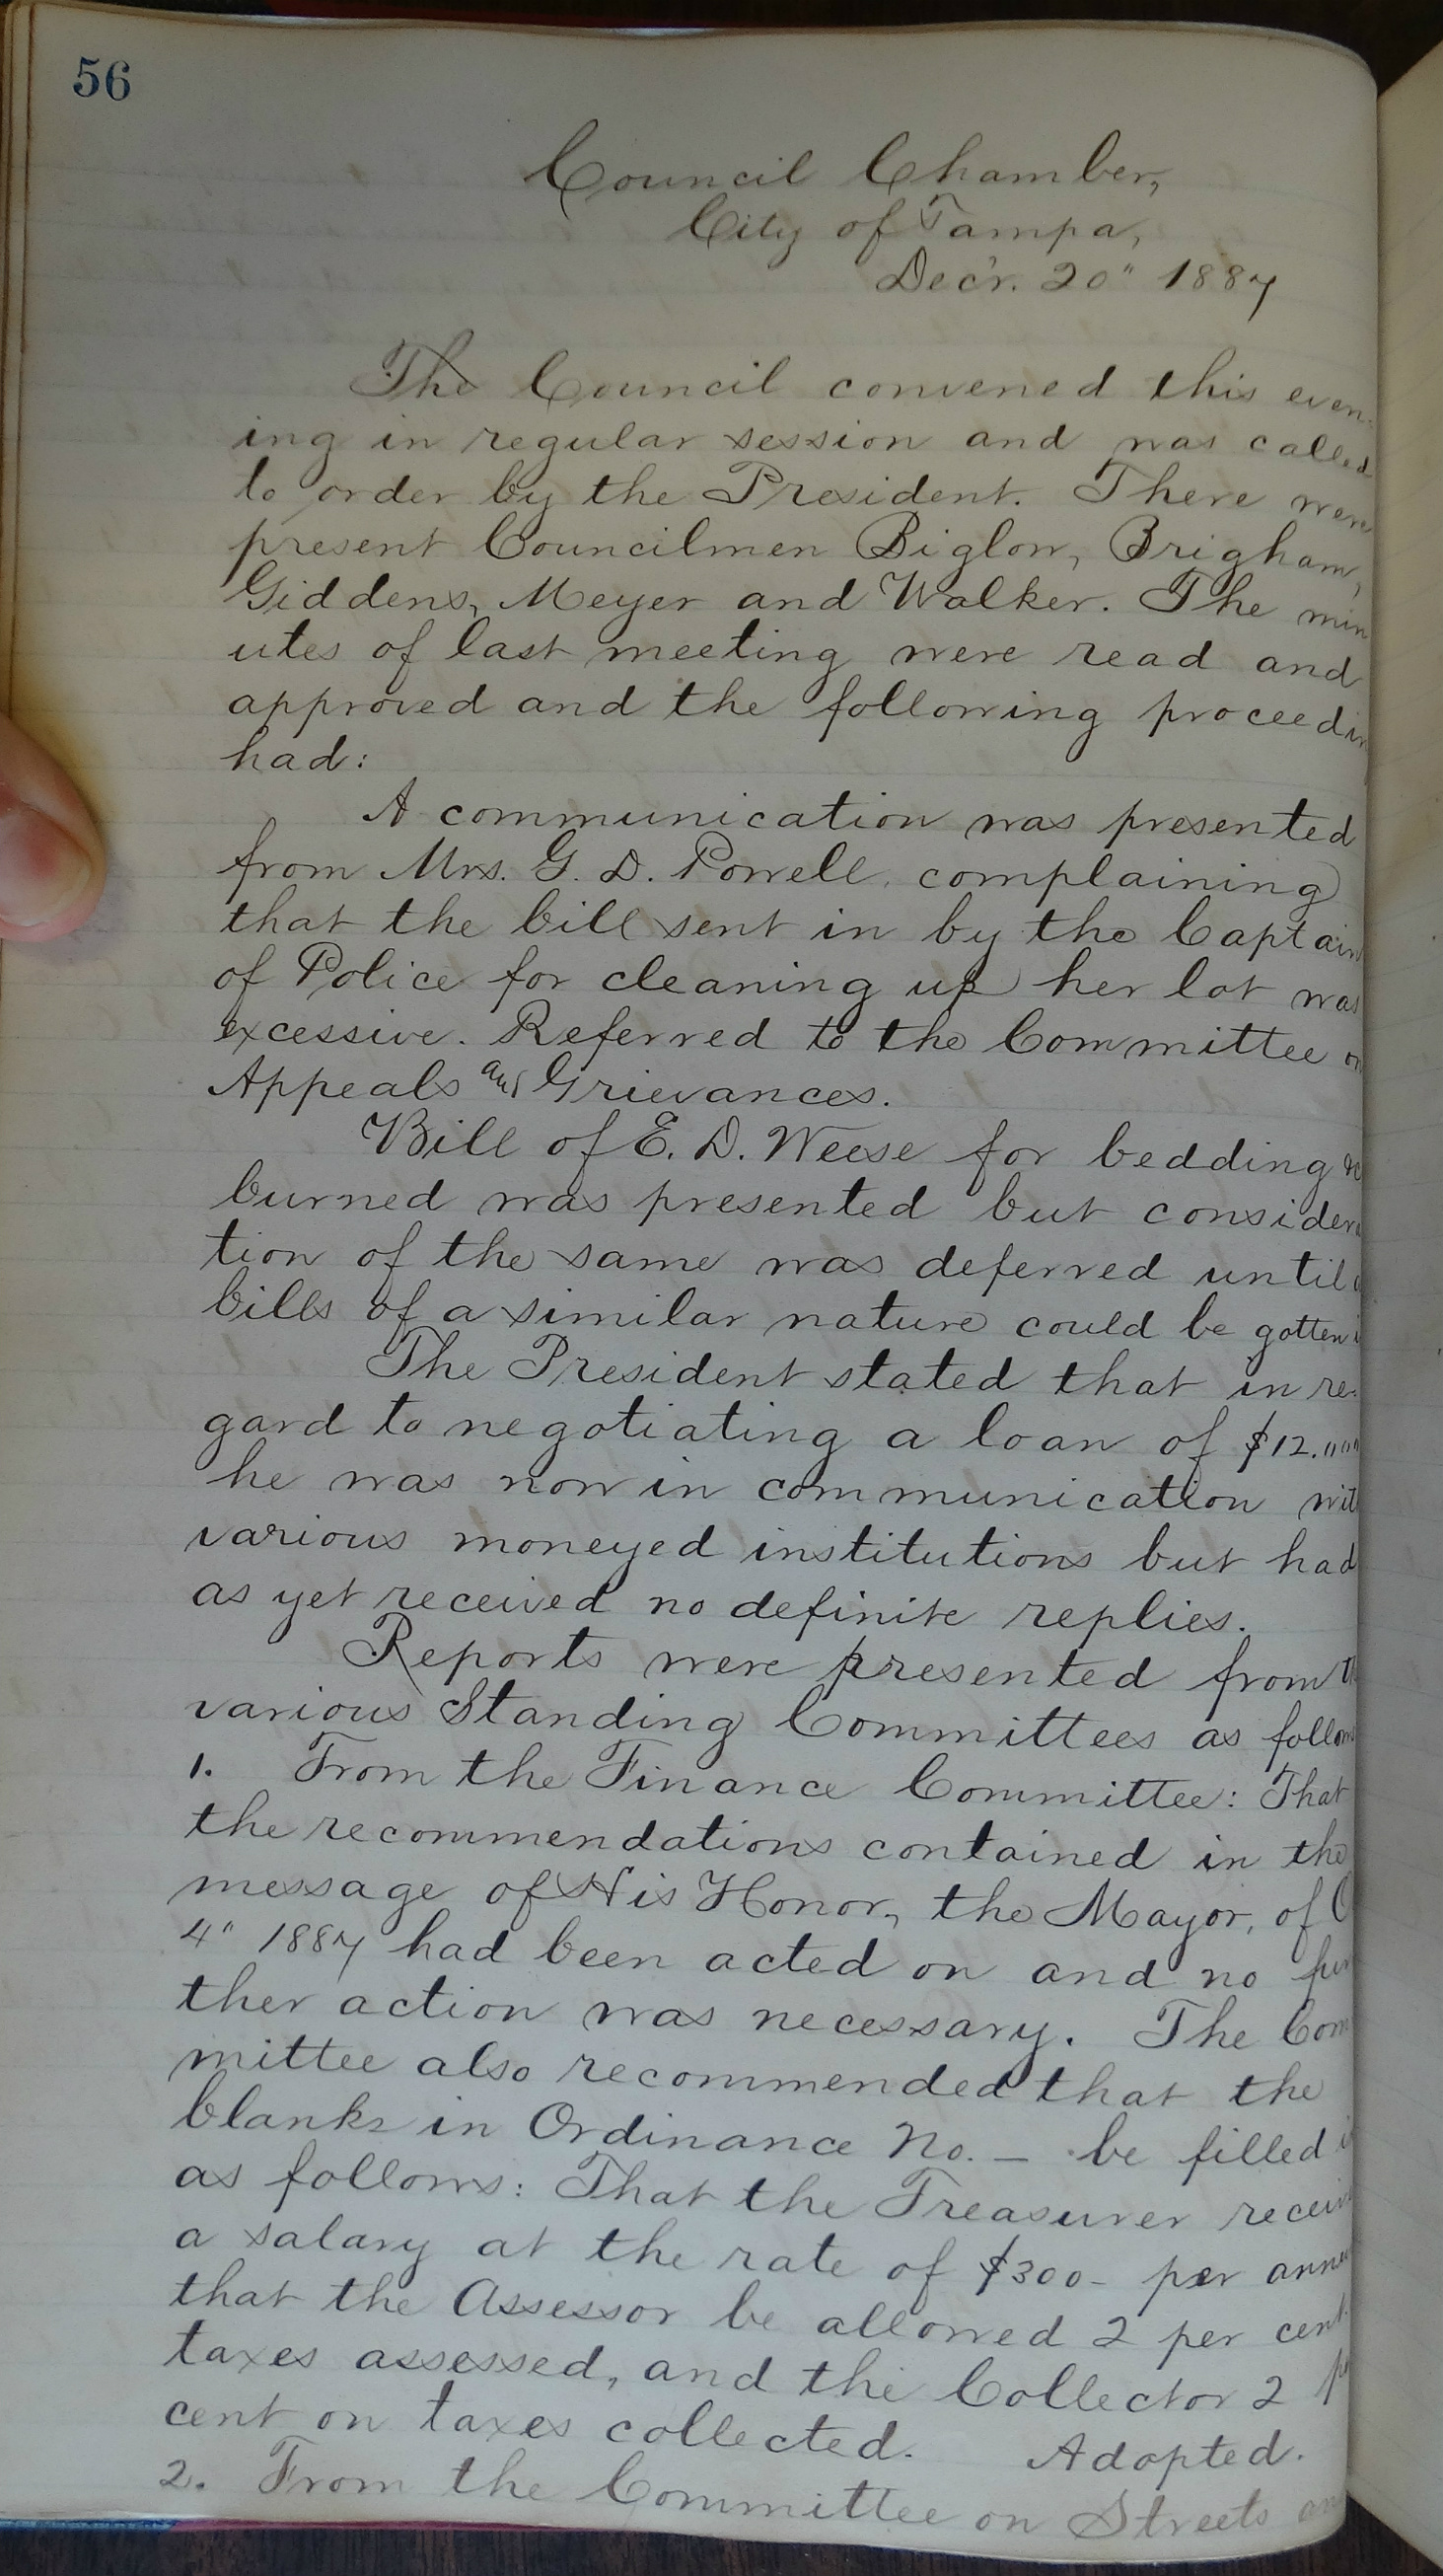 56
Council Chamber,
City of Tampa,
Dec'r. 20" 1887
The Council convened this even-
ing in regular session and was called
to order by the President. There were
present Councilmen Biglow, Brigham,
Giddens, Meyer and Walker. The min
utes of last meeting were read and
approved and the following proceedin
had:
A communication was presented
from Mrs. G. D. Powell, complaining
that the bill sent in by the Captain
of Police for cleaning up her lot was
excessive. Referred to the Committee on
Appeals and Grievances.
Bill of E. D. Weese for bedding &c
burned was presented but considera
tion of the same was deferred until
bills of a similar nature could be gotten i
The President stated that in re-
gard to negotiating a loan of $12.
he was now in communication with
various moneyed institutions but had
as yet received no definite replies.
Reports were presented from th
various Standing Committees as follow
1. From the Finance Committee: That
the recommendations contained in the
message of His Honor, the Mayor, of O
4" 1887 had been acted on and no fur
ther action was necessary. The Com
mittee also recommended that the
blanks in Ordinance No. — be filled i
as follows: That the Treasurer receiv
a salary at the rate of $300- per annu
that the Assessor be allowed 2 per cent
taxes assessed, and the Collector 2 pe
cent on taxes collected. Adopted.
2. From the Committee on Streets an